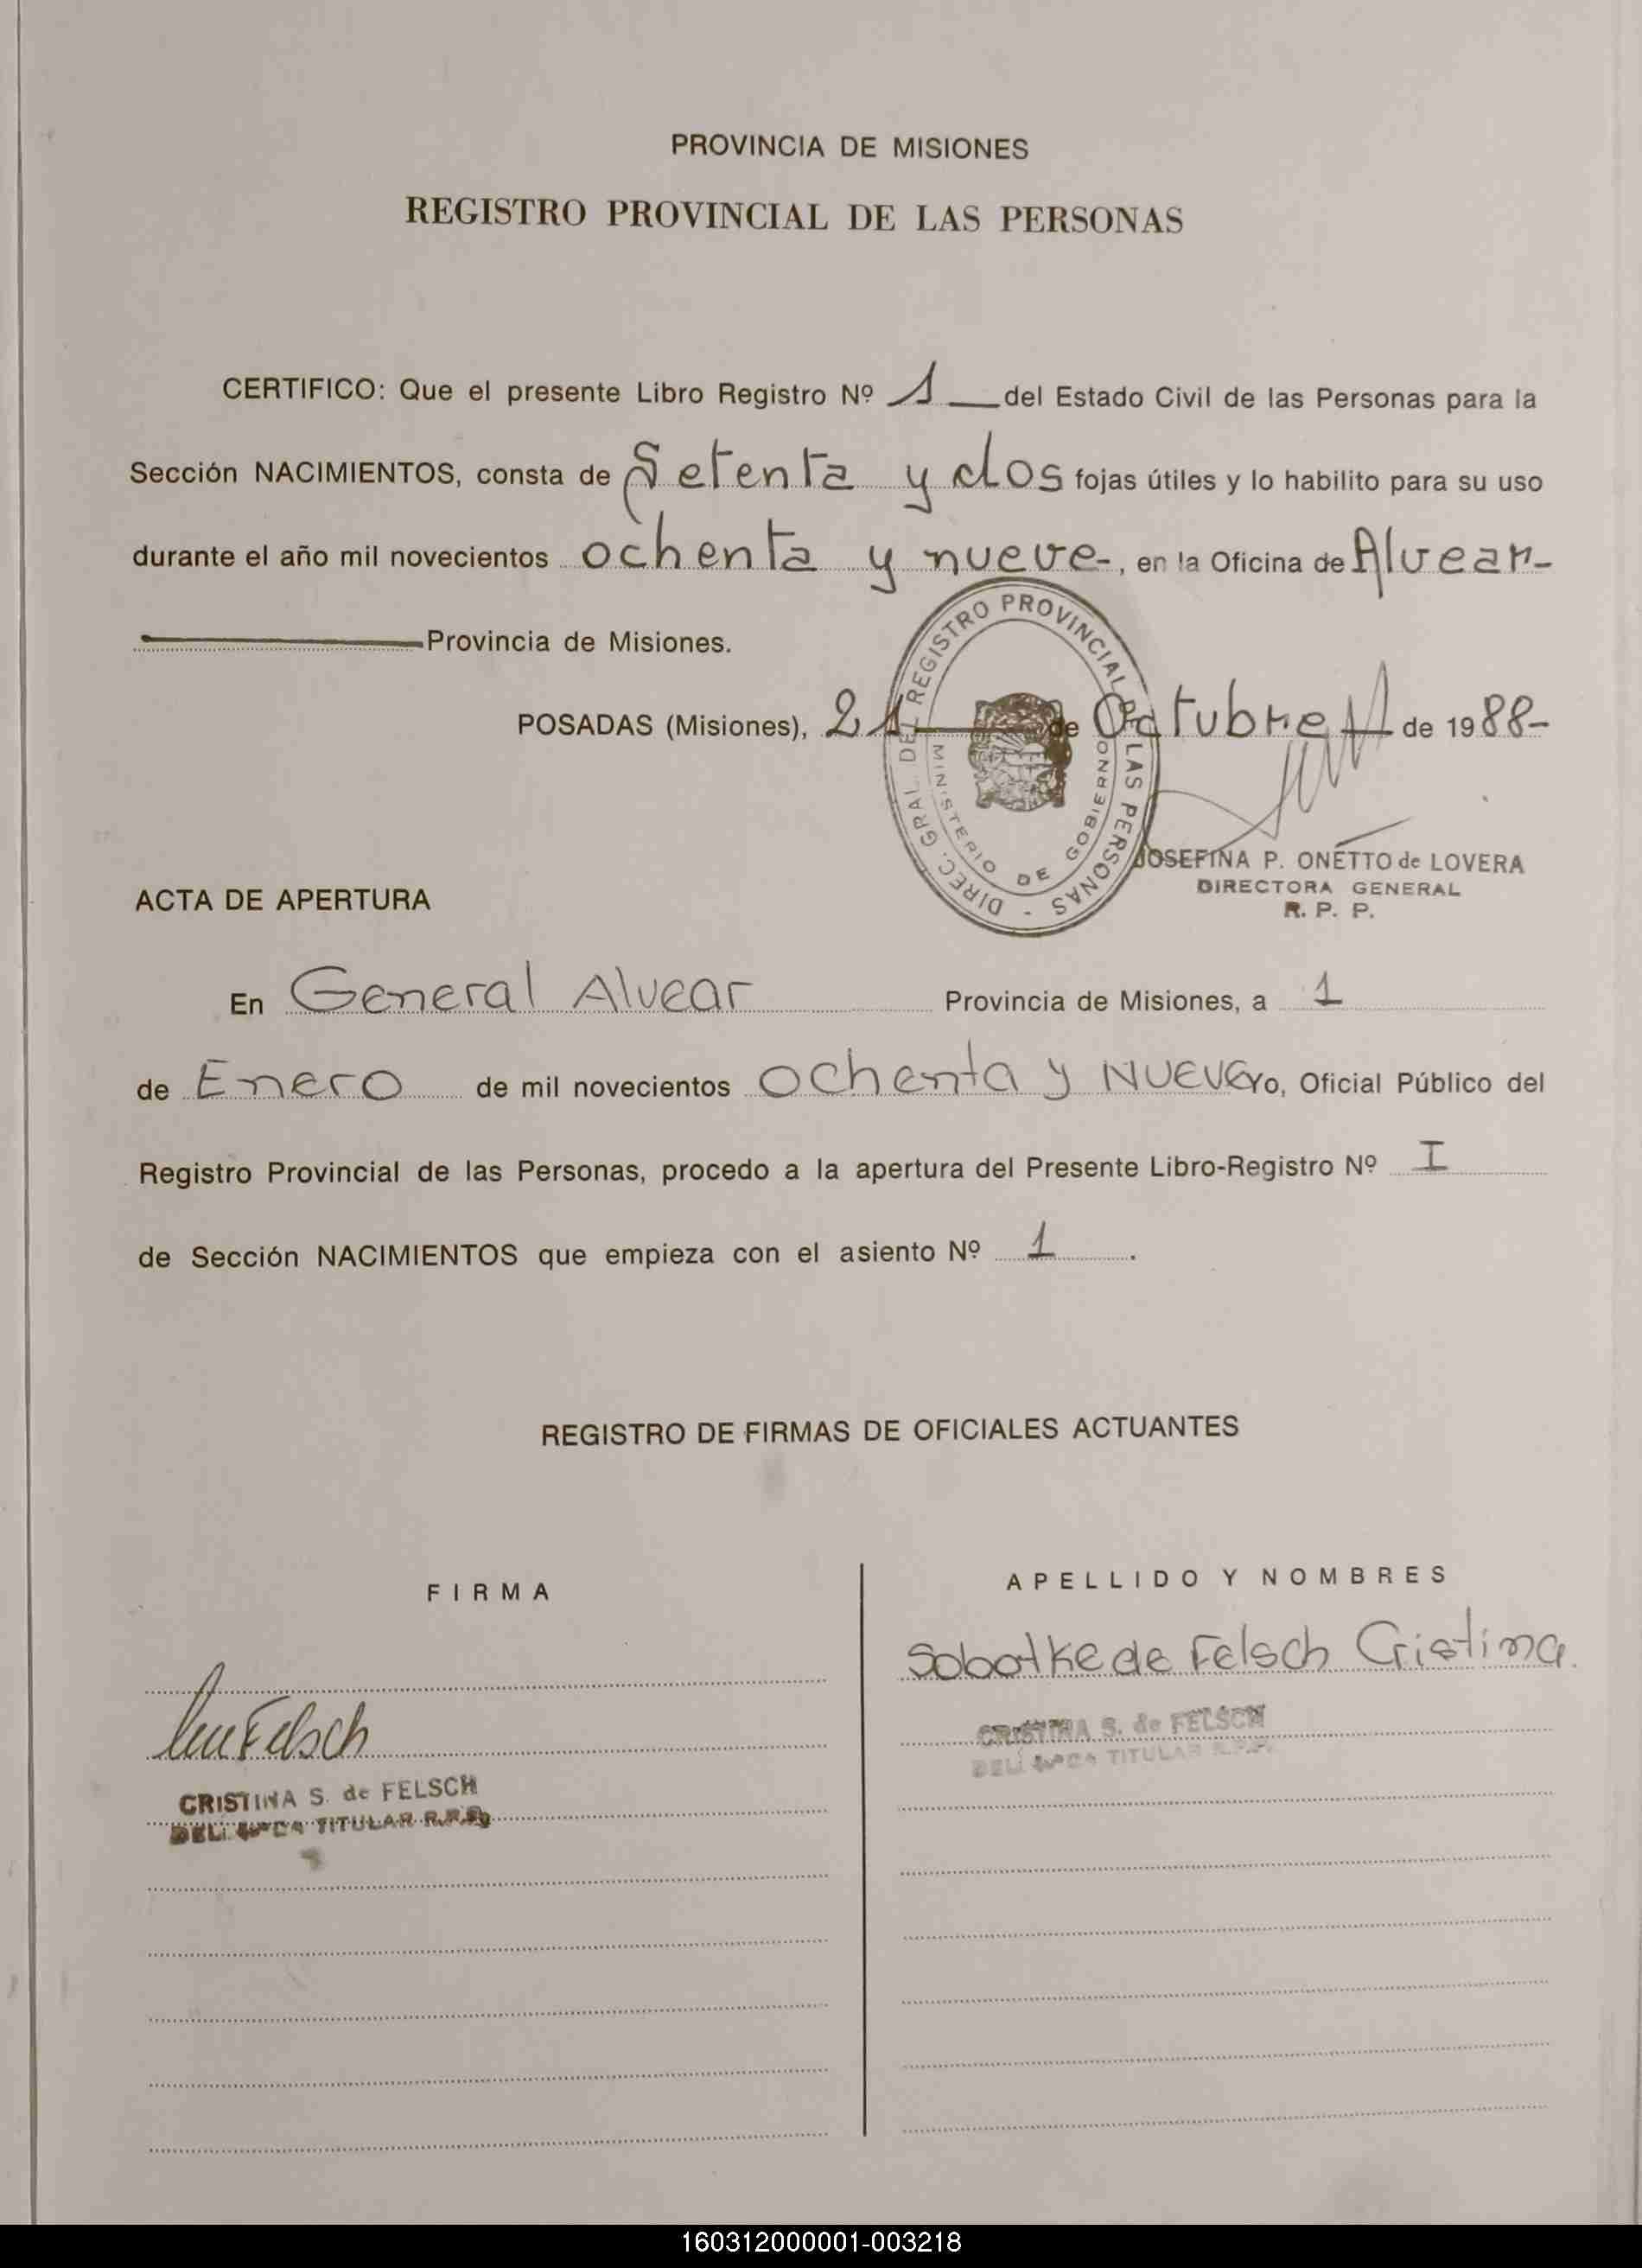 PROVINCIA DE MISIONES
REGISTRO PROVINCIAL DE LAS PERSONAS
CERTIFICO: Que el presente Libro Registro Nº 1 del Estado Civil de las Personas para la
Sección NACIMIENTOS, consta de Setenta y dos fojas útiles y lo habilito para su uso
durante el año mil novecientos ochenta y nueve-, en la Oficina de Alvear-
Provincia de Misiones.
POSADAS (Misiones), 21 de Octubre de 1988-
DIREC. GRAL DEL REGISTRO PROVINCIAL DE LAS PERSONAS -
MINISTERIO DE GOBIERNO
JOSEFINA P. ONETTO de LOVERA
DIRECTORA GENERAL
R. P. P.
ACTA DE APERTURA
En General Alvear Provincia de Misiones, a 1
de Enero de mil novecientos Ochenta y NUEVE Yo, Oficial Público del
Registro Provincial de las Personas, procedo a la apertura del Presente Libro-Registro Nº I
de Sección NACIMIENTOS que empieza con el asiento Nº 1.
REGISTRO DE FIRMAS DE OFICIALES ACTUANTES
FIRMA
APELLIDO Y NOMBRES
Sobotke de Felsch Cristina.
Felsch
CRISTINA S. de FELSCH
TITULAR R.P.P.
CRISTINA S. de FELSCH
TITULAR R.P.P.
160312000001-003218